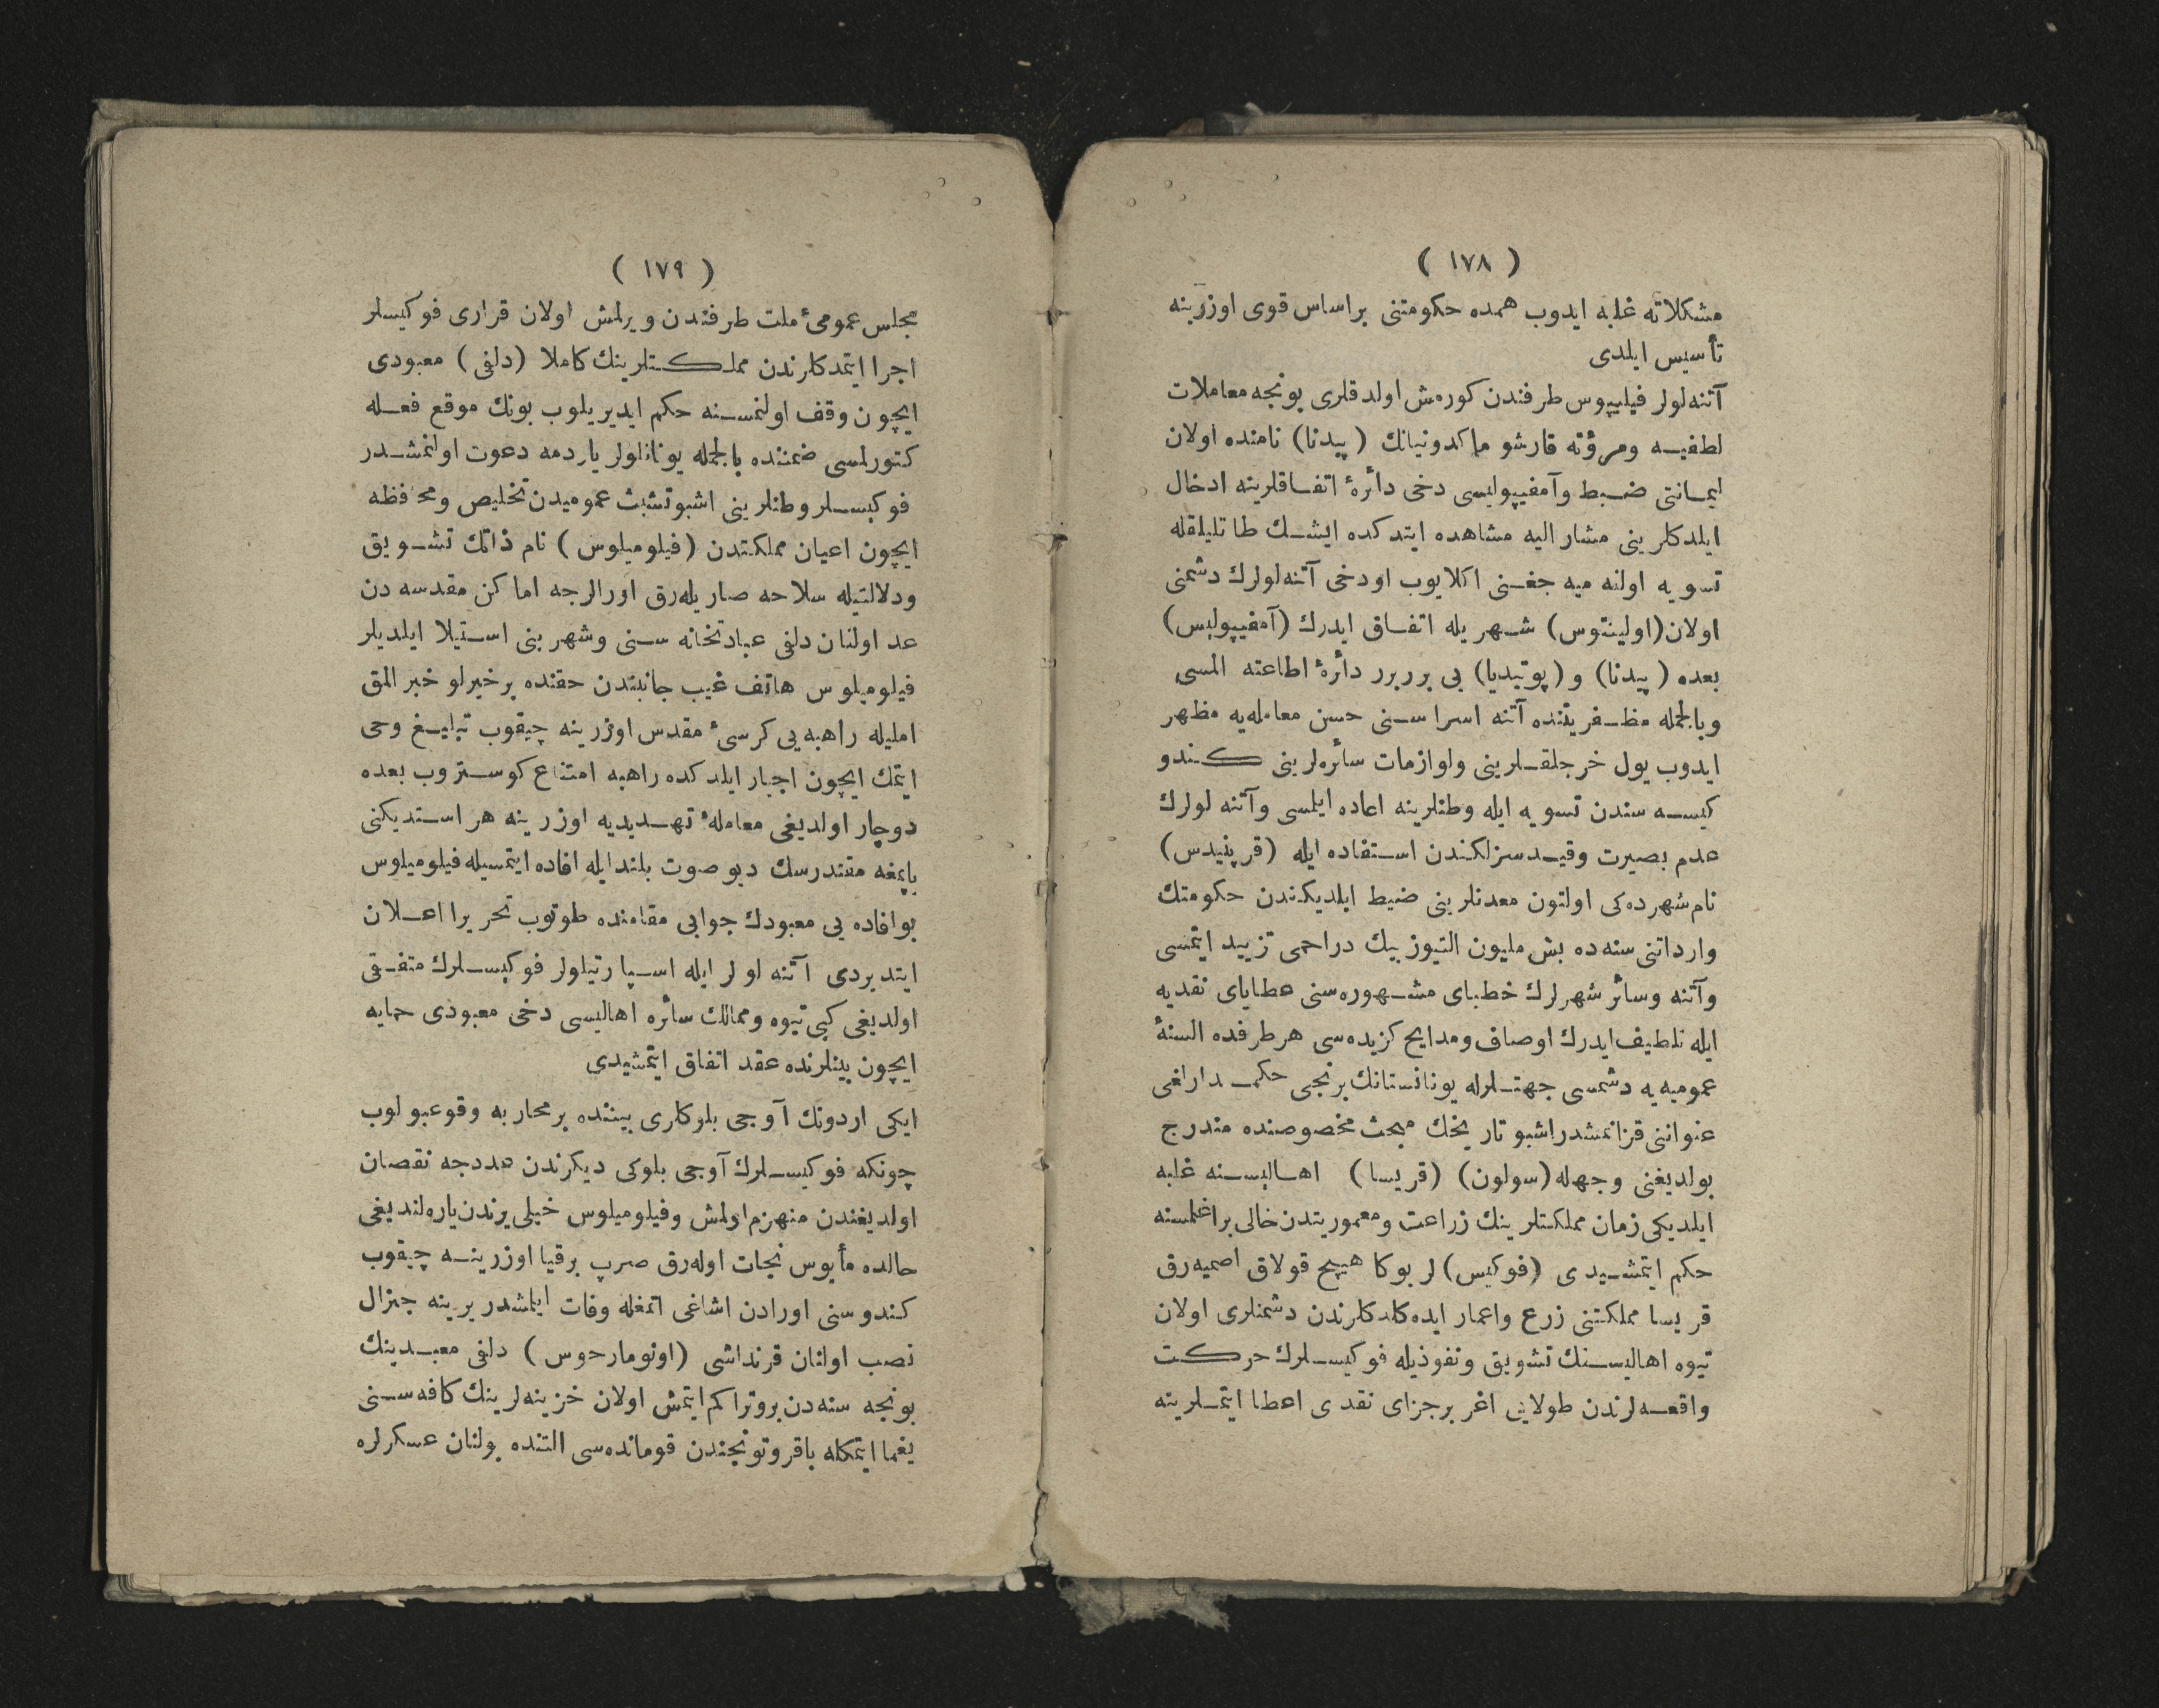 ( ١٧٨ )
مشكلاته غلبه ايدوب همده حكومتنى براساس قوى اوزرينه
تأسيس ايلدى
آتنه‌لولر فيليپوس طرفندن كورمش اولدقلرى بونجه معاملات
لطفيه ومروّته قارشو ماكدونيانك (پيدنا) نامنده اولان
ليمانتى ضبط وآمفيپوليسى دخى دائرۀ اتفاقلرينه ادخال
ايلدكلرينى مشار اليه مشاهده ايتدكده ايشك طاتليلقله
تسويه اولنه ميه جغنى اكلايوب اودخى آتنه‌لولرك دشمنى
اولان (اولينتوس) شهريله اتفاق ايدرك (آمفيپوليس)
بعده (پيدنا) و (پوتيديا) يى برربرر دائرۀ اطاعته المسى
وبالجمله مظفريتنده آتنه اسراسنى حسن معامله‌يه مظهر
ايدوب يول خرجلقلرينى ولوازمات سائره‌لرينى كندو
كيسه سندن تسويه ايله وطنلرينه اعاده ايلمسى وآتنه لولرك
عدم بصيرت وقيدسزلكندن استفاده ايله (قرپنيدس)
نام شهرده‌كى اولتون معدنلرينى ضبط ايلديكندن حكومتك
وارداتنى سنه‌ده بش مليون التيوز بيك دراحمى تزييد ايتمسى
وآتنه وسائر شهرلرك خطباى مشهوره‌سنى عطاياى نقديه
ايله تلطيف ايدرك اوصاف ومدايح كزيده‌سى هر طرفده السنۀ
عموميه يه دشمسى جهتلرله يونانستانك برنجى حكمدارلغى
عنواننى قزانمشدر اشبو تاريخك مبحث مخصوصنده مندرج
بولديغنى وجهله (سولون) (قريسا) اهاليسنه غلبه
ايلديكى زمان مملكتلرينك زراعت ومعموريتدن خالى براغلمسنه
حكم ايتمشيدى (فوكيس) لر بوكا هيچ قولاق اصميه‌رق
قريسا مملكتنى زرع واعمار ايده كلدكلرندن دشمنلرى اولان
تيوه اهاليسنك تشويق ونفوذيله فوكيسلرك حركت
واقعه‌لرندن طولايى اغر برجزاى نقدى اعطا ايتملرينه
( ١٧٩ )
مجلس عمومئ ملت طرفندن ويرلمش اولان قرارى فوكيسلر
اجرا ايتمدكلرندن مملكتلرينك كاملا (دلفى) معبودى
ايچون وقف اولنمسنه حكم ايديريلوب بونك موقع فعله
كتورلمسى ضمننده بالجمله يونانلولر ياردمه دعوت اولنمشدر
فوكيسلر وطنلرينى اشبو تشبث عموميدن تخليص ومحافظه
ايچون اعيان مملكتدن (فيلوميلوس) نام ذاتك تشويق
ودلالتيله سلاحه صاريله‌رق اورالرجه اماكن مقدسه دن
عد اولنان دلفى عبادتخانه سنى وشهرينى استيلا ايلديلر
فيلوميلوس هاتف غيب جانبندن حقنده برخيرلو خبر المق
امليله راهبه يى كرسئ مقدس اوزرينه چيقوب تبليغ وحى
ايتمك ايچون اجبار ايلدكده راهبه امتناع كوستروب بعده
دوچار اولديغى معاملۀ تهديديه اوزرينه هر استديكنى
ياپمغه مقتدرسك ديو صوت بلند ايله افاده ايتمسيله فيلوميلوس
بوافاده يى معبودك جوابى مقامنده طوتوب تحريرا اعلان
ايتديردى آتنه لولر ايله اسپارتيلولر فوكيسلرك متفقى
اولديغى كبى تيوه وممالك سائره اهاليسى دخى معبودى حمايه
ايچون بينلرنده عقد اتفاق ايتمشيدى
ايكى اردونك آوجى بلوكلرى بيننده برمحاربه وقوعبولوب
چونكه فوكيسلرك آوجى بلوكى ديكرندن عددجه نقصان
اولديغندن منهزم اولمش وفيلوميلوس خيلى يرندن ياره‌لنديغى
حالده مأيوس نجات اوله‌رق صرپ برقيا اوزرينه چيقوب
كندوسنى اورادن اشاغى اتمغله وفات ايلمشدر يرينه جنرال
نصب اولنان قرنداشى (اونومارحوس) دلفى معبدينك
بونجه سنه‌دن برو تراكم ايتمش اولان خزينه‌لرينك كافه‌سنى
يغما ايتمكله باقر وتونجندن قومانده‌سى التنده بولنان عسكرلره